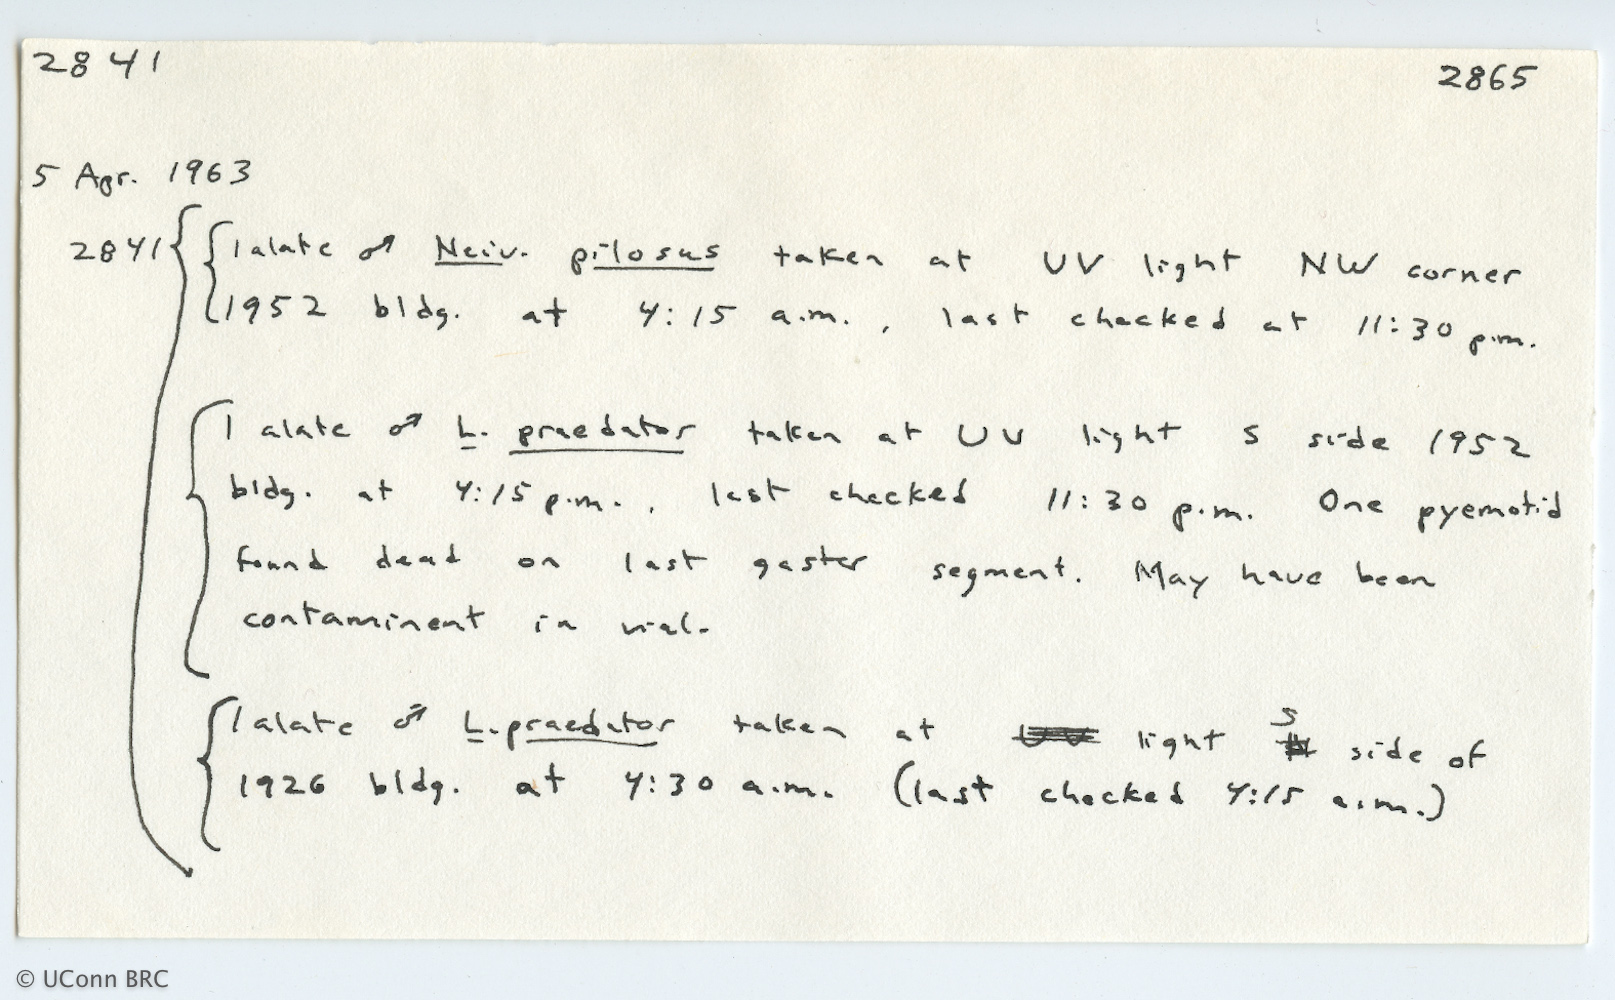 2841 2865
5 Apr. 1963
2841 1 alate ♂ Neiv. pilosus taken at UV light NW corner
1952 bldg. at 4:15 a.m., last checked at 11:30 p.m.
1 alate ♂ L. praedator taken at UV light S side 1952
bldg. at 4:15 p.m., last checked 11:30 p.m. One pyemotid
found dead on last gaster segment. May have been
contaminent in vial.
1 alate ♂ L. praedator taken at light S side of
1926 bldg. at 4:30 a.m. (last checked 4:15 a.m.)
© UConn BRC